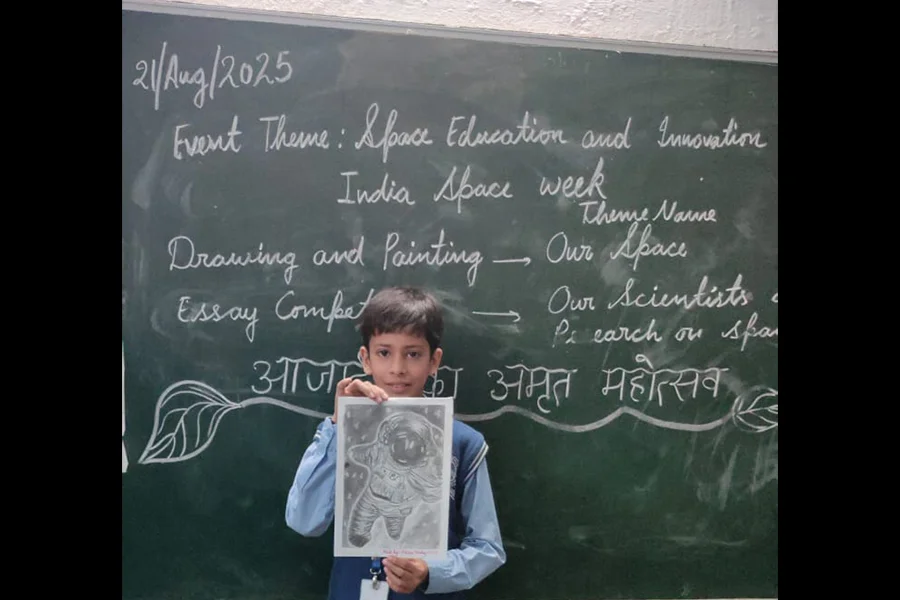 21/Aug/2025
Event Theme: Space Education and Innovation
India Space week
Theme Name
Drawing and Painting → Our Space
Essay Compet → Our Scientists
earch on Spa
का अमृत महोत्सव